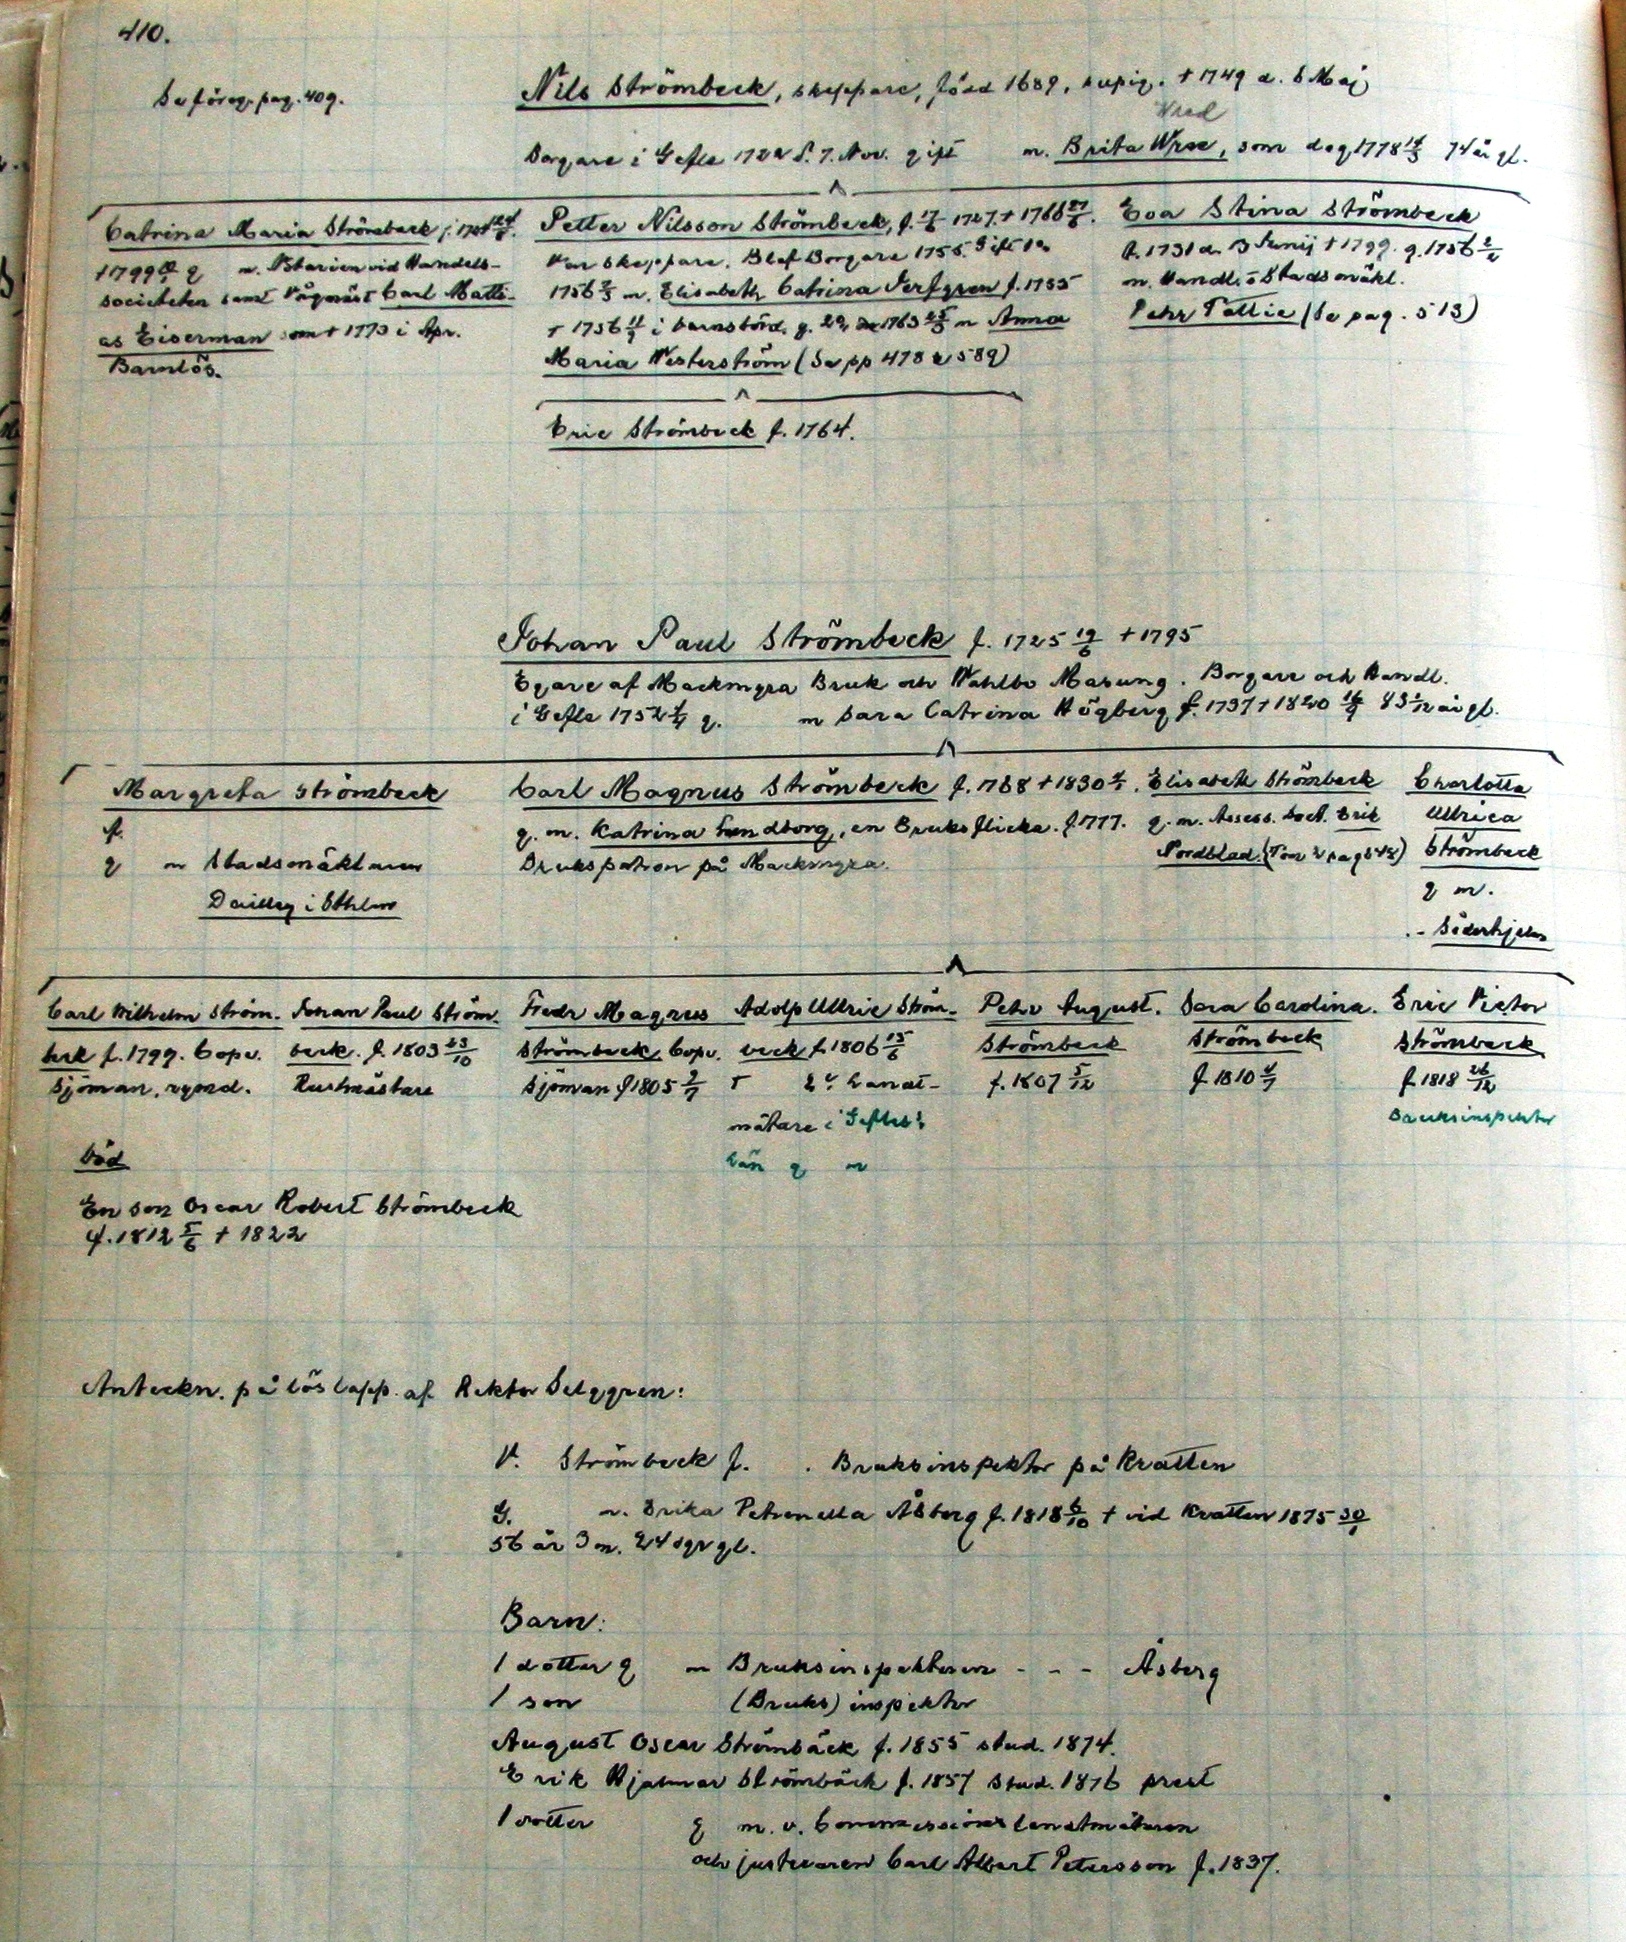 410.
Se föreg. pag. 409.
Nils Strömbeck, skeppare, född 1689, † 1749 d. 8 Maj
Wred
Borgare i Gefle 1722 d. 7. Nov. gift m. Brita Wree, som dog 1778 74 år gl.
Catrina Maria Strömbeck f.
† 1799 g m. Notarien vid Handels-
societeten samt Vågmäst Carl Matti-
as Eiserman som † 1773 i Apr.
Barnlös.
Petter Nilsson Strömbeck, f. 1727 † 1766
Var skeppare. Blef Borgare 1755. Gift 1o
1756 m. Elisabeth Catrina f. 1735
† 1756 i barnsbörd. g. 2o 1763 25/5 m Anna
Maria Westerström (Se pp 478 & 589)
Eva Stina Strömbeck
f. 1731 d. 3 Junij † 1799. g. 1756
m. Handl. o Stadsmäkl.
Pehr Tottie (Se pag. 513)
Eric Strömbeck f. 1764.
Johan Paul Strömbeck f. 1725 19/6 † 1795
Egare af Mackmyra Bruk och Wahlbo Masung. Borgare och Handl.
i Gefle 1752 g. m Sara Catrina Högberg f. 1737 † 1820 83 år gl.
Margreta Strömbeck
f.
g m Stadsmäklaren
i Sthlm
Carl Magnus Strömbeck f. 1768 † 1830
g. m. Katrina Sundborg, en Bruksflicka. f. 1777.
Brukspatron på Mackmyra.
Elisabeth Strömbeck
g. m. Assess. Doct. Erik
Nordblad.
Charlotta
Ulrica
Strömbeck
g m.
.- Söderhjelm
Carl Wilhelm Ström-
beck f. 1799. Copv.
sjöman, rymd.
Johan Paul Ström-
beck. f. 1803 23/10
Rustmästare
Fredr Magnus
Strömbeck Copv.
sjöman f 1805 3/7
Adolp Ulric Ström-
beck f 1806 15/6
† Landt-
mätare i Gefleb:s
Län g m
Petr August.
Strömbeck
f. 1807 5/12
Sara Carolina.
Strömbeck
f 1810 4/7
Eric Victor
Strömbeck
f 1818 26/12
Bruksinspektor
Död
En son Oscar Robert Strömbeck
f. 1812 5/6 † 1822
Anteckn. på löslapp af Rektor Selggren:
V. Strömbeck f. . Bruksinspektor på Kratten
G. m. Erika Petronella Åsberg f. 1818 6/10 † vid Kratten 1875 30/1
56 år 3 m. 24 dgr gl.
Barn:
1 dotter g m Bruksinspektoren - - - Åsberg
1 son (Bruks) inspektor
August Oscar Strömbäck f. 1855 stud. 1874.
Erik Hjalmar Strömbäck f. 1857 stud. 1876 prest
1 dotter g m. v. Commissionslandtmätaren
och justeraren Carl Albert Petersson f. 1837.